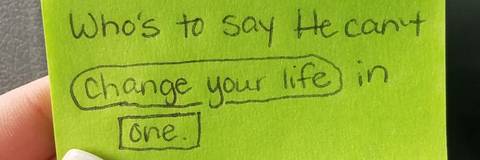 Who's to say He can't
change your life in
one.